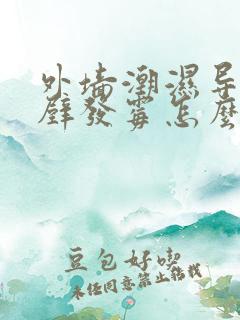 外墙潮湿导
壁发霉怎么
豆包好喫
未经同意禁止转载